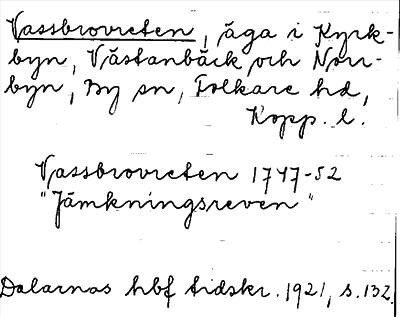 Vassbrovreten, äga i Kyrk-
byn, Västanbäck och Norr-
byn, By sn, Folkare hd,
Kopp. l.
Vassbrovreten 1747-52
"Jämkningsreven"
Dalarnas hbf tidskr. 1921, s. 132.